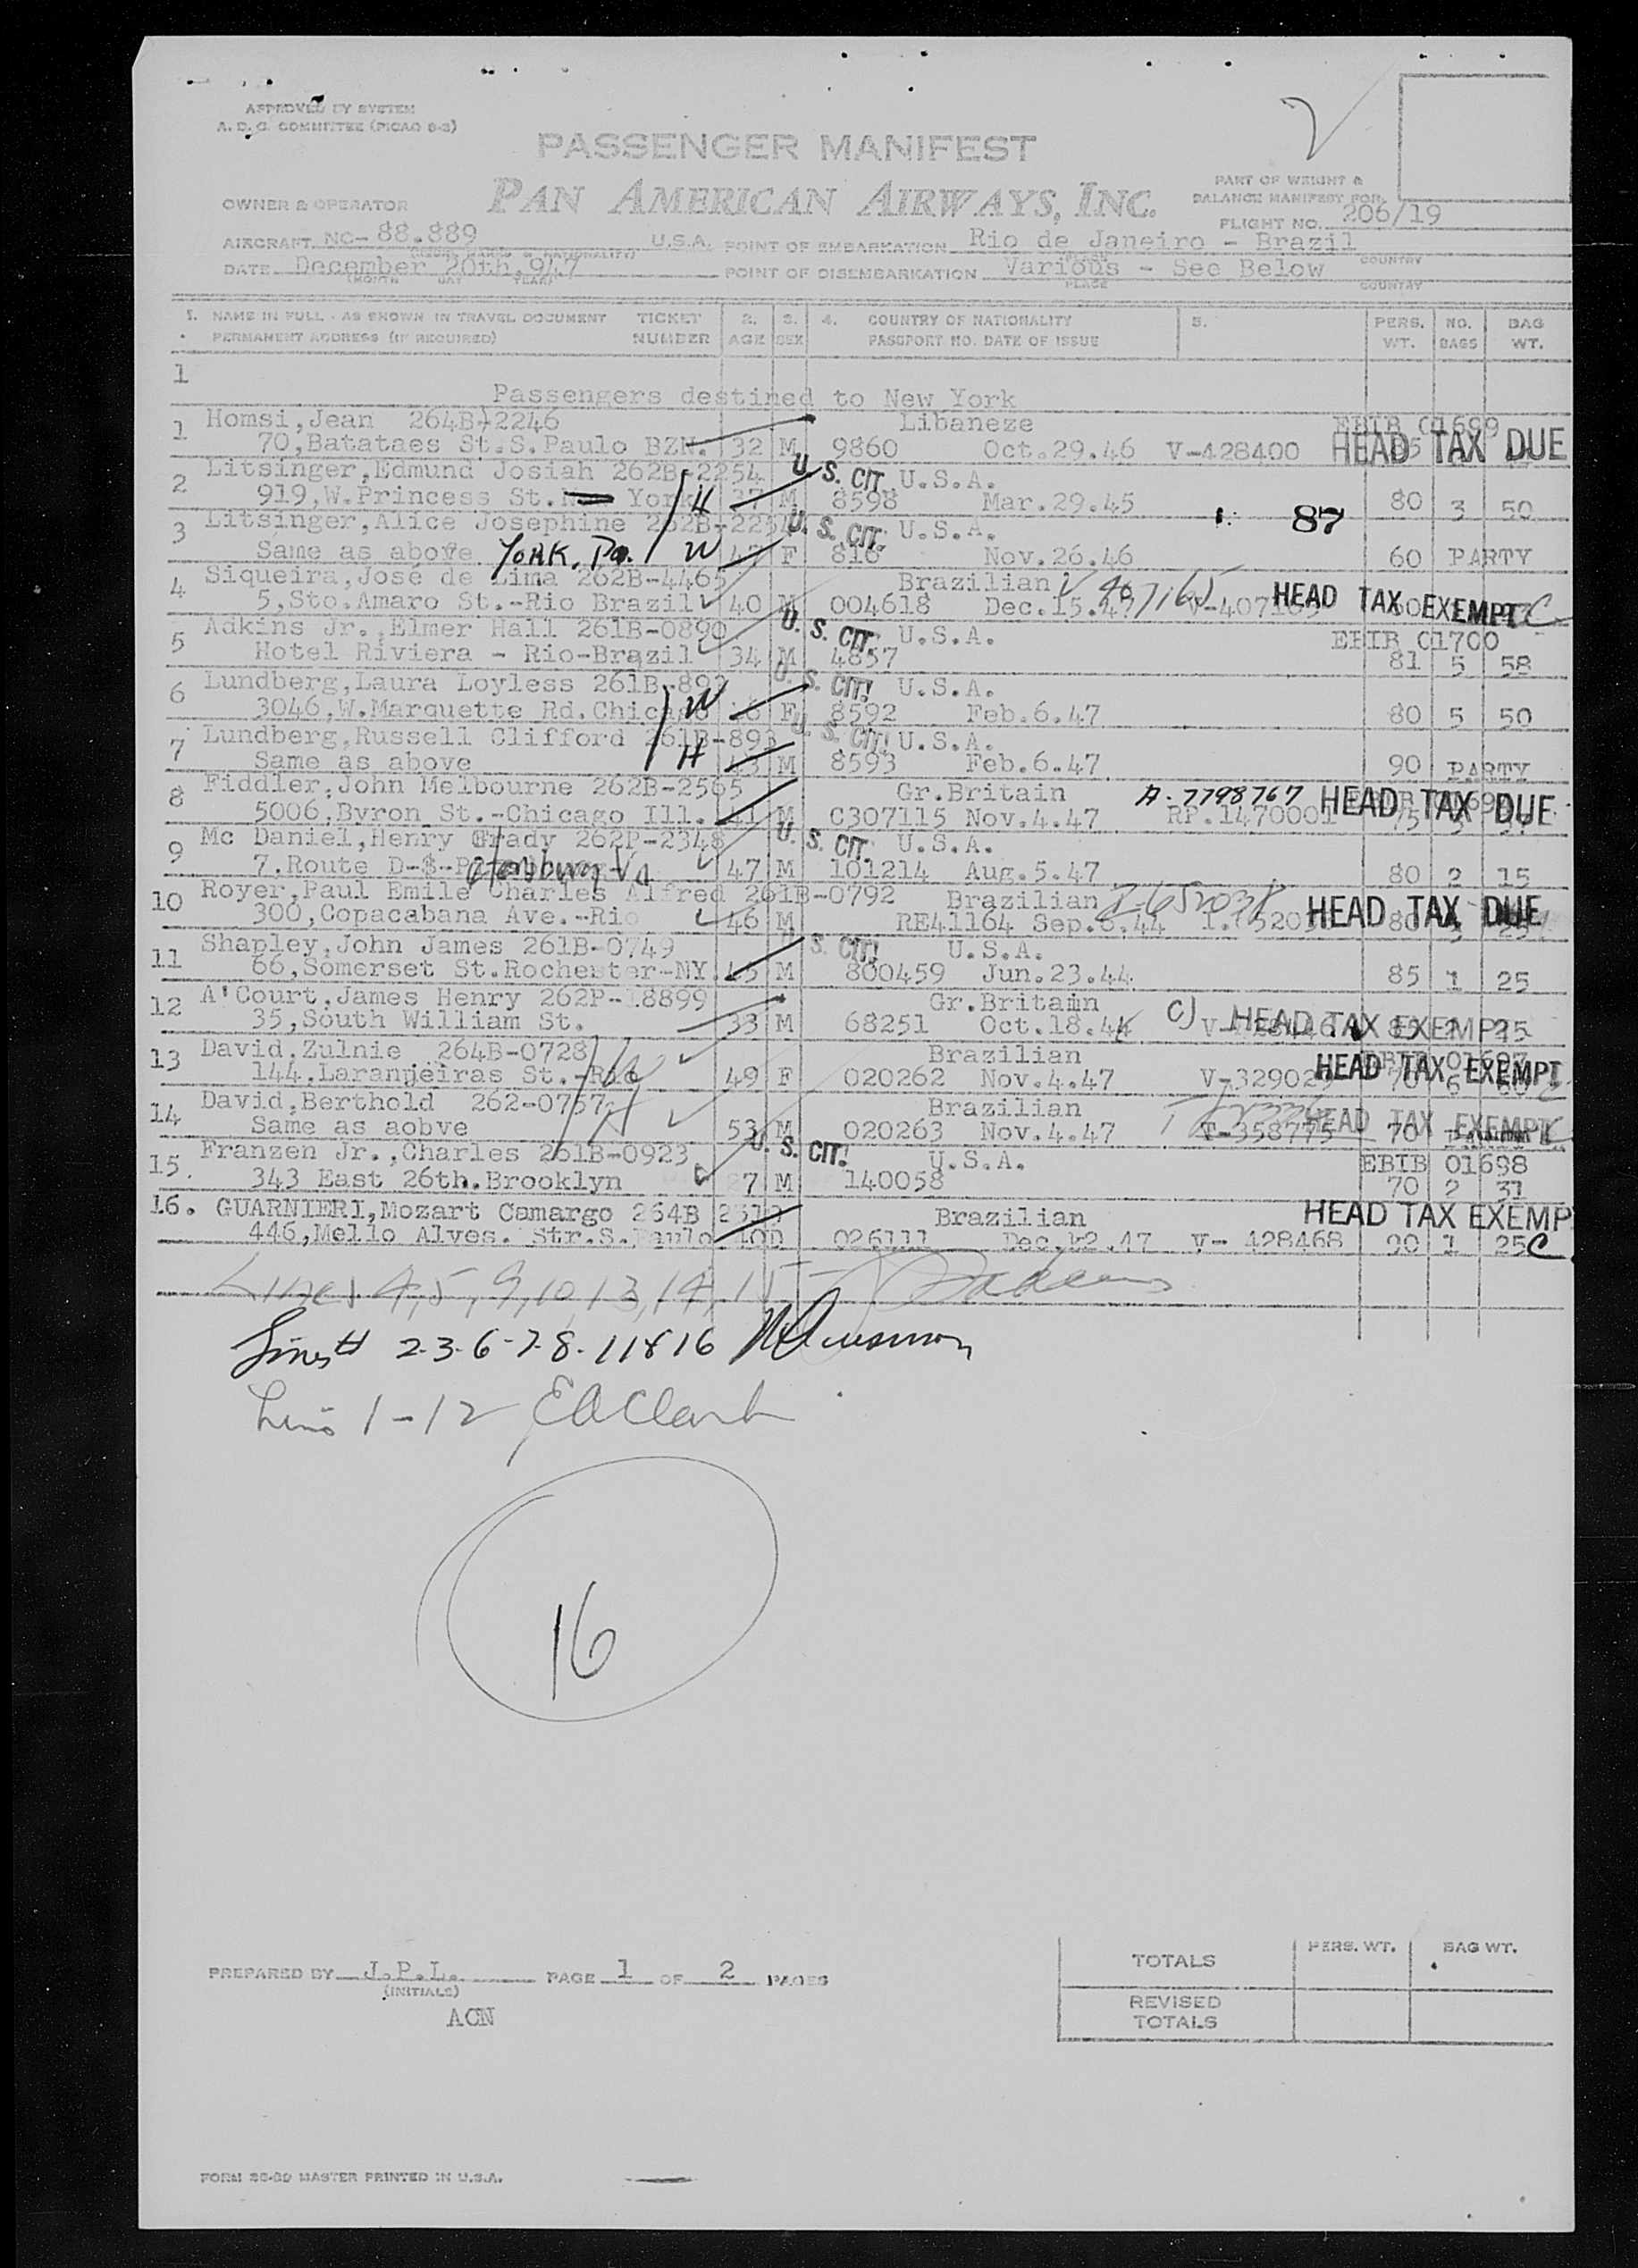 APPROVED BY SYSTEM
A. D. C. COMMITTEE (PICAO 8-3)
PASSENGER MANIFEST
PAN AMERICAN AIRWAYS, INC.
PART OF WEIGHT &
BALANCE MANIFEST FOR
OWNER & OPERATOR
FLIGHT NO. 206/19
AIRCRAFT NC- 88.889 U.S.A. POINT OF EMBARKATION Rio de Janeiro - Brazil
PLACE COUNTRY
DATE December 20th,947 POINT OF DISEMBARKATION Various - See Below
(MONTH DAY YEAR) PLACE COUNTRY
1. NAME IN FULL - AS SHOWN IN TRAVEL DOCUMENT TICKET 2. 3. 4. COUNTRY OF NATIONALITY 5. PERS. NO. BAG
PERMANENT ADDRESS (IF REQUIRED) NUMBER AGE SEX PASSPORT NO. DATE OF ISSUE WT. BAGS WT.
1
Passengers destined to New York
1 Homsi,Jean 264B-2246 Libaneze EBIB 01699
70,Batataes St.S.Paulo BZN. 32 M 9860 Oct.29.46 V-428400 HEAD TAX DUE
2 Litsinger,Edmund Josiah 262B-2254 U. S. CIT. U.S.A.
919,W.Princess St. York H 37 M 8598 Mar.29.45 80 3 50
3 Litsinger,Alice Josephine U. S. CIT. U.S.A. 87
Same as above YORK, Pa. W 47 F 816 Nov.26.46 60 PARTY
4 Siqueira,José de Lima 262B-4465 Brazilian V 407165
5,Sto.Amaro St.-Rio Brazil 40 M 004618 Dec.15.47 HEAD TAX EXEMPT C
5 Adkins Jr.,Elmer Hall 261B-0890 U. S. CIT. U.S.A. EBIB 01700
Hotel Riviera - Rio-Brazil 34 M 4857 81 5 58
6 Lundberg,Laura Loyless 261B-892 U. S. CIT! U.S.A.
3046,W.Marquette Rd.Chicago W F 8592 Feb.6.47 80 5 50
7 Lundberg,Russell Clifford 261B-893 U. S. CIT! U.S.A.
Same as above H 43 M 8593 Feb.6.47 90 PARTY
8 Fiddler,John Melbourne 262B-2565 Gr.Britain A-7798767
5006,Byron St.-Chicago Ill. 41 M C307115 Nov.4.47 RP.1470001 HEAD TAX DUE
9 Mc Daniel,Henry Grady 262P-2348 U. S. CIT. U.S.A.
7.Route D-$- Va 47 M 101214 Aug.5.47 80 2 15
10 Royer,Paul Emile Charles Alfred 261B-0792 Brazilian
300,Copacabana Ave.-Rio 46 M RE41164 Sep.6.44 HEAD TAX DUE
11 Shapley,John James 261B-0749 U. S. CIT! U.S.A.
66,Somerset St.Rochester-NY. 45 M 800459 Jun.23.44 85 1 25
12 A'Court,James Henry 262P-18899 Gr.Britain
35,South William St. 33 M 68251 Oct.18.44 C) HEAD TAX EXEMPT
13 David,Zulnie 264B-0728 Brazilian
144,Laranjeiras St.-Rio W 49 F 020262 Nov.4.47 HEAD TAX EXEMPT
14 David,Berthold 262-0757 Brazilian
Same as aobve H 53 M 020263 Nov.4.47 T-358775 HEAD TAX EXEMPT
15 Franzen Jr.,Charles 261B-0923 U. S. CIT! U.S.A. EBIB 01698
343 East 26th.Brooklyn 27 M 140058 70 2 31
16. GUARNIERI,Mozart Camargo 264B Brazilian HEAD TAX EXEMP
446,Mello Alves. Str.S.Paulo 40 026111 Dec.12.47 V- 428468 90 1 25 C
Lines 4,5,9,10,13,14,15
Lines # 2-3-6-7-8-11&16
Line 1-12 EAClark
16
PREPARED BY J.P.L. PAGE 1 OF 2 PAGES
(INITIALS)
ACN
PERS. WT. BAG WT.
TOTALS
REVISED
TOTALS
FORM 36-89 MASTER PRINTED IN U.S.A.